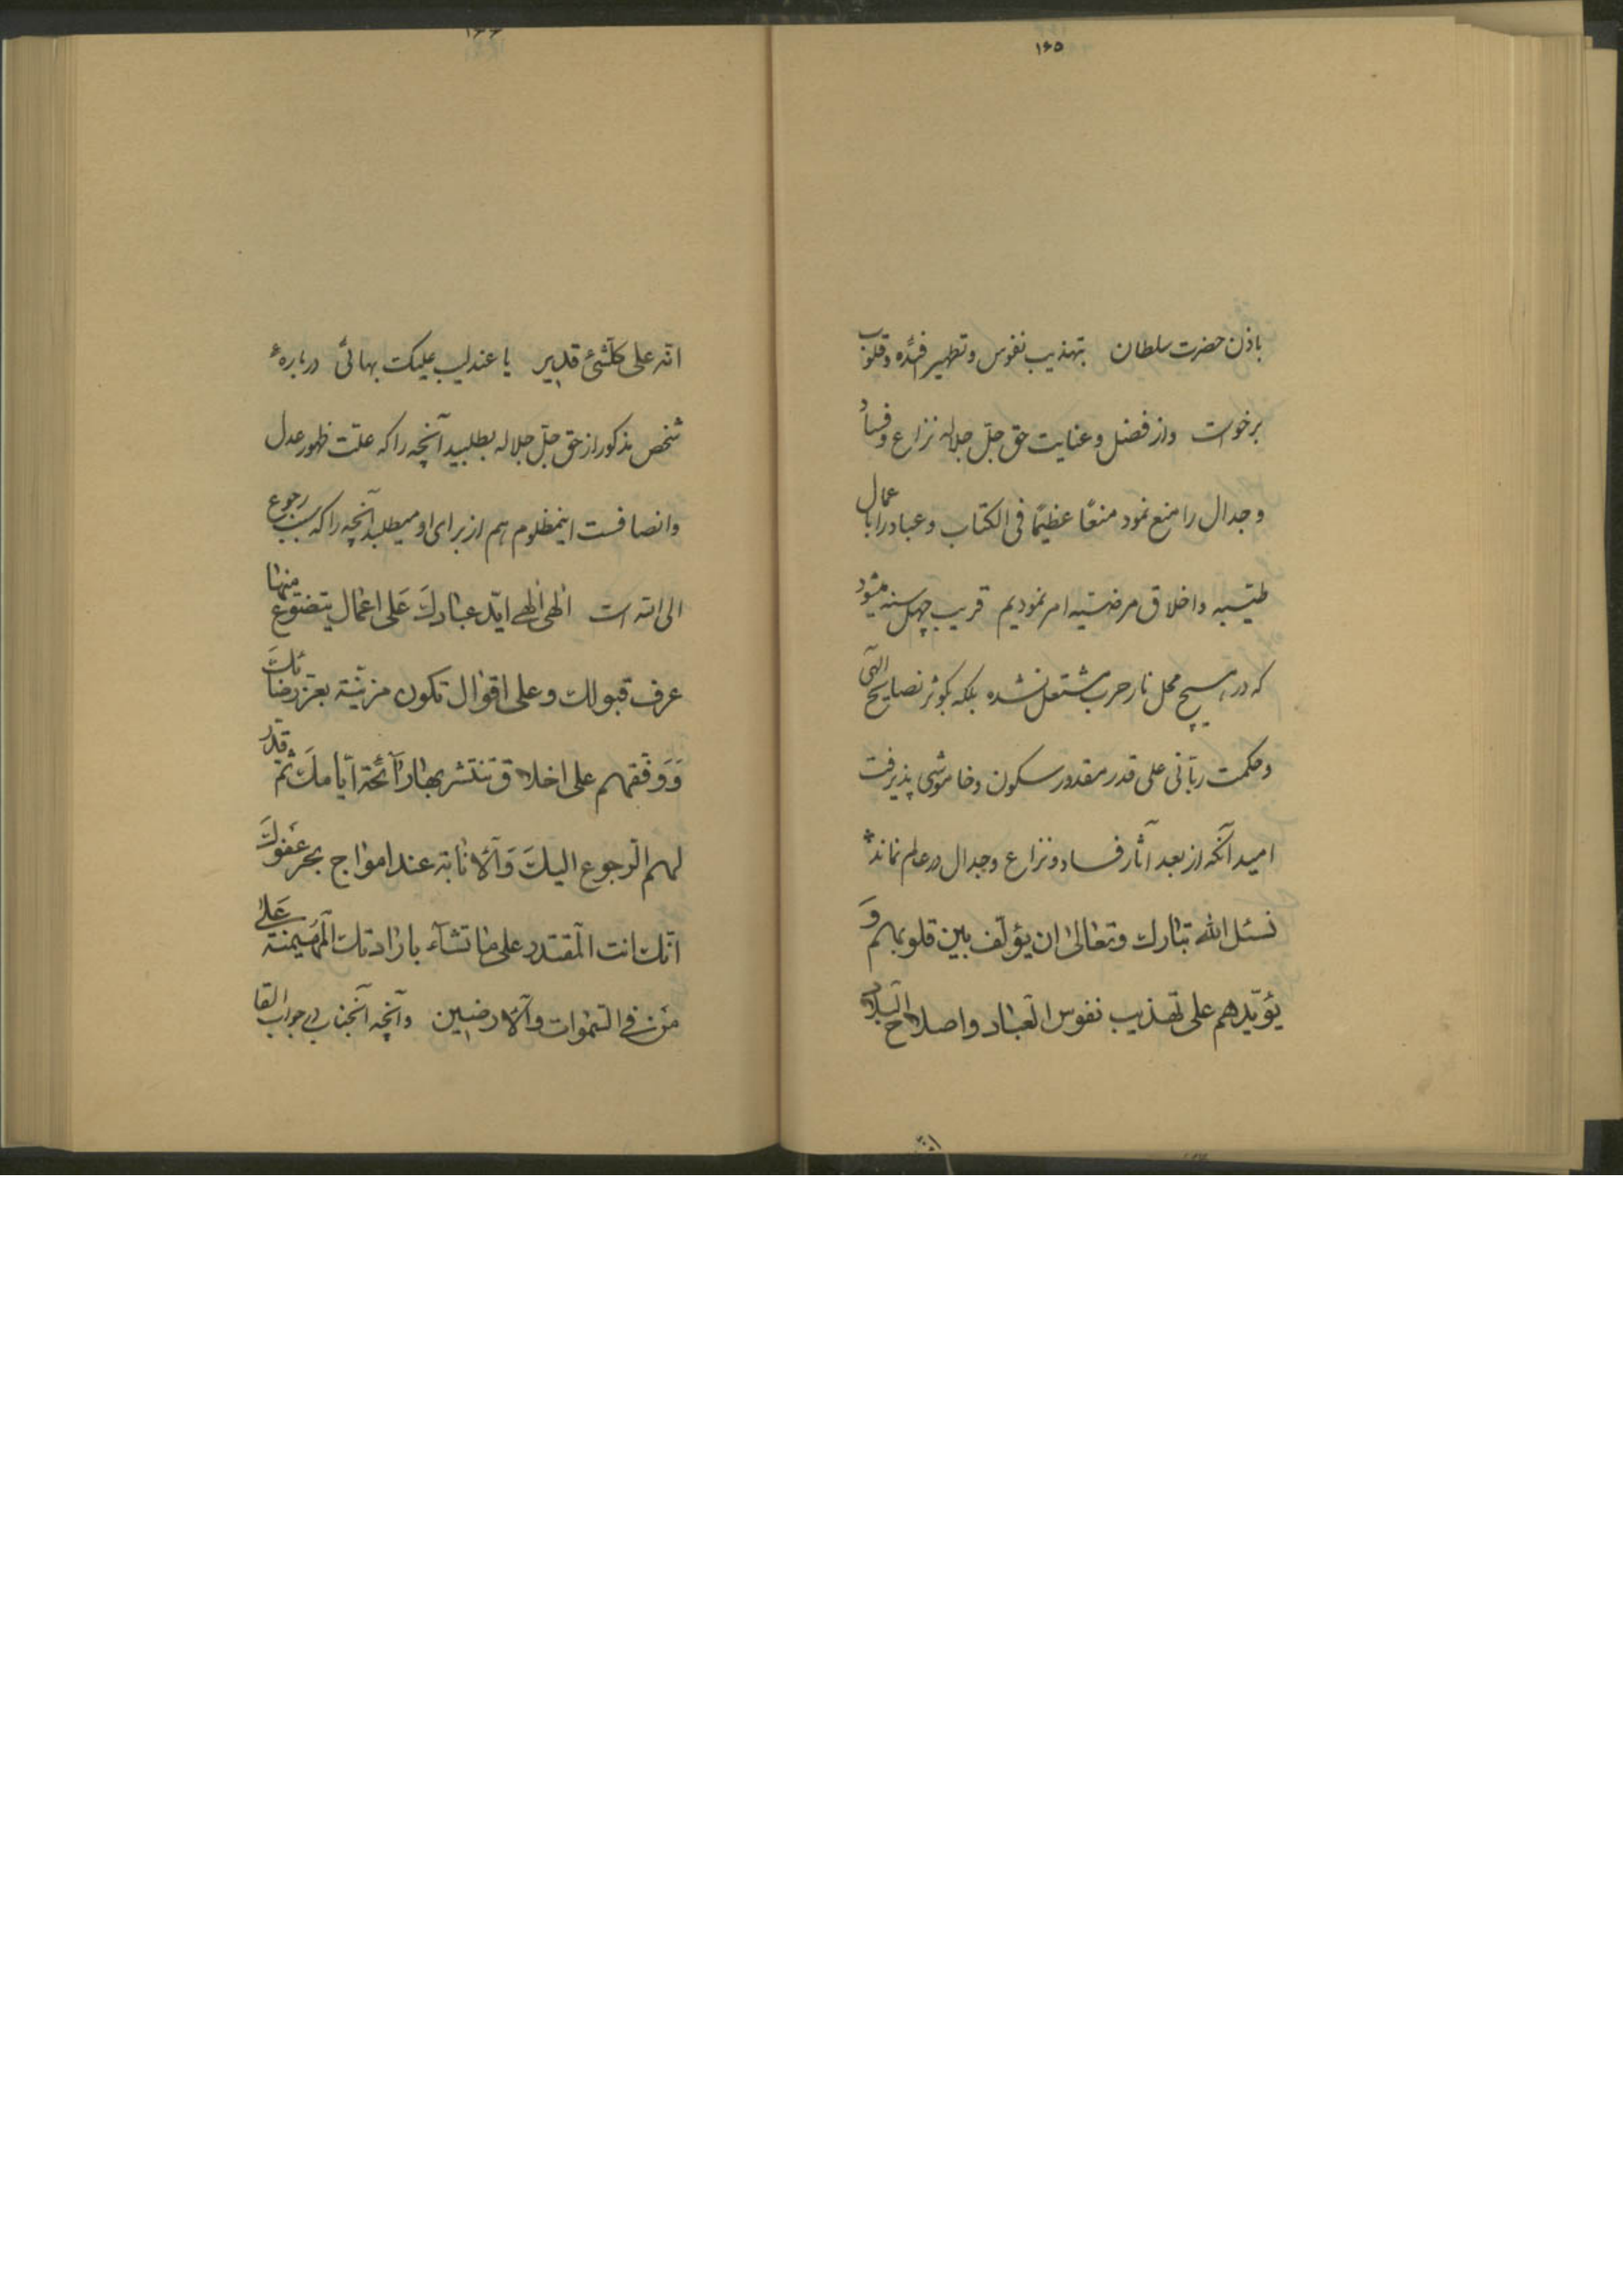 ۱۶۵
باذن حضرت سلطان بتهذیب نفوس و تطهیر افئده و قلوب
برخواست و از فضل و عنایت حق جلّ جلاله نزاع و فساد
و جدال را منع نمود منعًا عظیمًا فی الکتاب و عباد را باعمال
طیّبه و اخلاق مرضیّه امر نمودیم قریب چهل سنه میشود
که در هیچ محل نار حرب مشتعل نشده بلکه بکوثر نصایح الهی
و حکمت ربّانی علی قدر مقدور سکون و خاموشی پذیرفت
امید آنکه از بعد آثار فساد و نزاع و جدال در عالم نماند
نسئل الله تبارك وتعالی ان یؤلّف بین قلوبهم وَ
یؤیّدهم علی تهذیب نفوس العباد واصلاح البلاد
انّه
۱۶۶
انّه علی کلّشیٔ قدیر یا عندلیب علیک بهائی درباره‌ٔ
شخص مذکور از حق جلّ جلاله بطلبید آنچه را که علّت ظهور عدل
و انصافست اینمظلوم هم از برای او میطلبد آنچه را که سبب رجوع
الی الله است الٰهی الٰهی ایّد عبادكَ عَلی اعمال یتضوّع منها
عرف قبولك وعلی اقوال تکون مزیّنة بعزّ رضائكَ
وَوفّقهم علی اخلاق تنتشر بها رآئحة ایّامكَ ثمّ قدّر
لهم الرّجوع الیكَ وَالأنابة عند امواج بحر عَفوكَ
انّك انت المقتدر علی ما تشآء بارادتك المهیمنة عَلی
مَن فی السّموات والأرضین و آنچه آنجناب در جواب القا